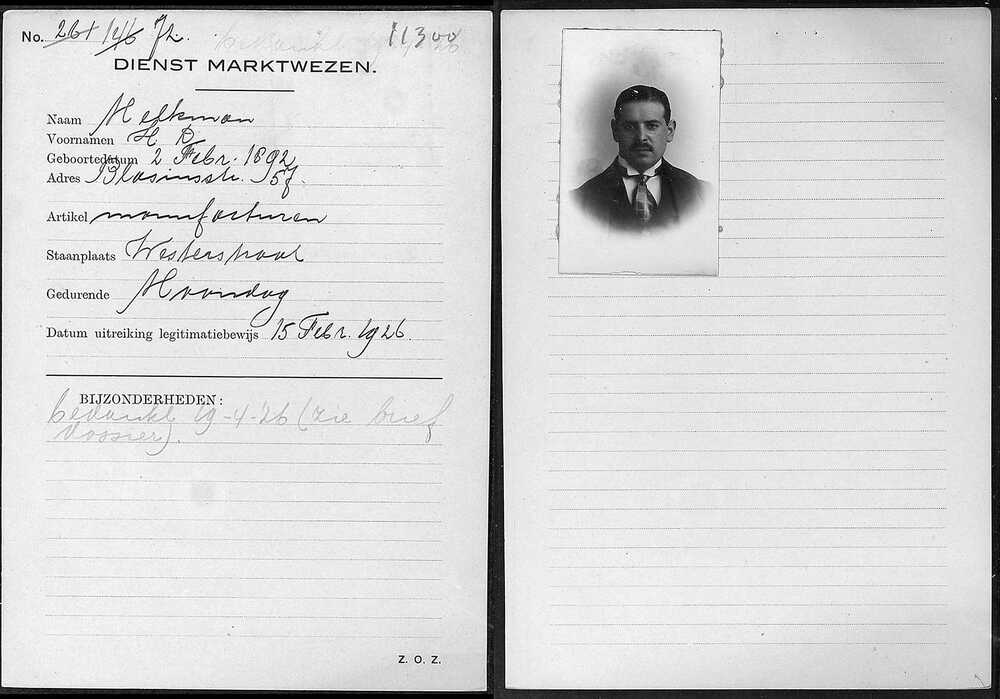 No. 261 146 72. 11300
bedankt 19/4 26
DIENST MARKTWEZEN.
Naam Melkman
Voornamen H R
Geboortedatum 2 Febr. 1892
Adres Blasiusstr. 57
Artikel manufacturen
Staanplaats Westerstraat
Gedurende Maandag
Datum uitreiking legitimatiebewijs 15 Febr. 1926.
BIJZONDERHEDEN:
bedankt 19-4-26 (zie brief
dossier).
Z. O. Z.